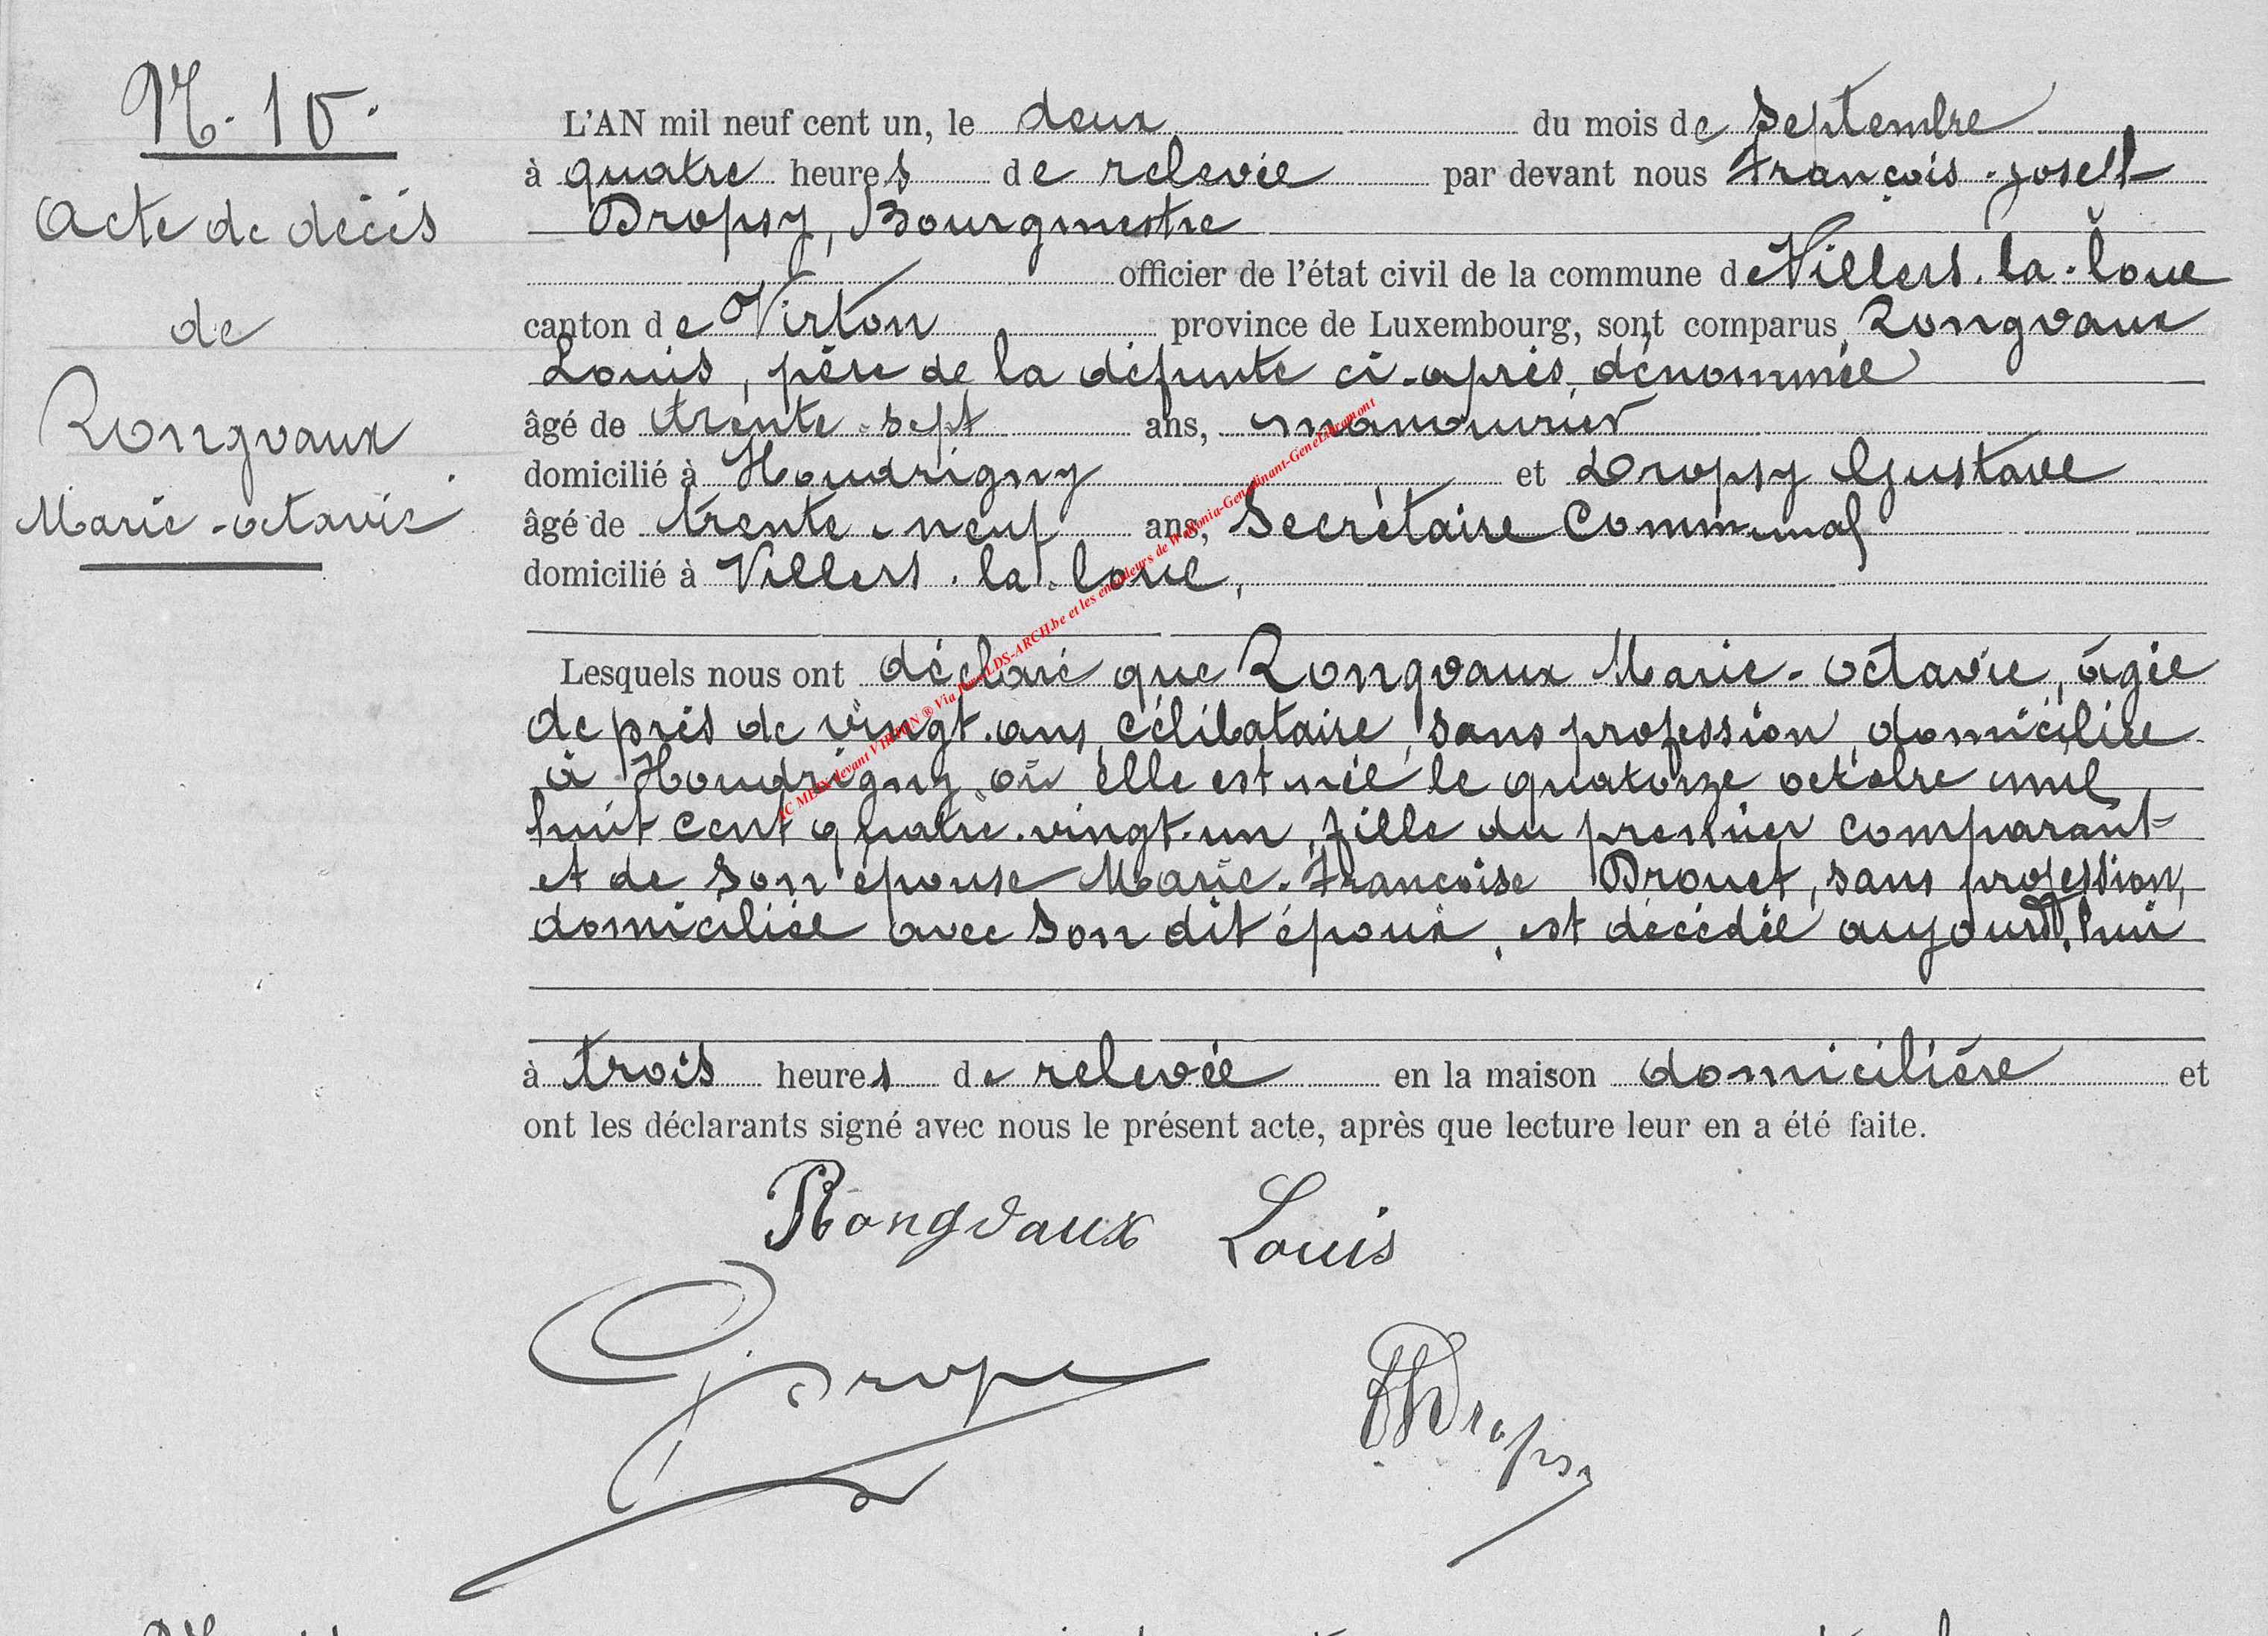 N. 15.
Acte de décès
de
Rongvaux
Marie-octavie
L'AN mil neuf cent un, le deux du mois de Septembre
à quatre heures de relevée par devant nous François-Joseph
Dropsy, Bourgmestre
officier de l'état civil de la commune de Villers-la-loue
canton de Virton province de Luxembourg, sont comparus Rongvaux
Louis, père de la défunte ci-après dénommée
âgé de trente-sept ans, manouvrier
domicilié à Houdrigny et Dropsy Gustave
âgé de trente-neuf ans, Secrétaire Communal
domicilié à Villers-la-loue,
Lesquels nous ont déclaré que Rongvaux Marie-octavie, âgée
de près de vingt ans, célibataire, sans profession, domiciliée
à Houdrigny où elle est née le quatorze octobre mil
huit cent quatre-vingt-un, fille du premier comparant
et de son épouse Marie-Françoise Drouet, sans profession,
domiciliée avec son dit époux, est décédée aujourd'hui
à trois heures de relevée en la maison domicilière et
ont les déclarants signé avec nous le présent acte, après que lecture leur en a été faite.
Rongvaux Louis
GDropsy
FJDropsy